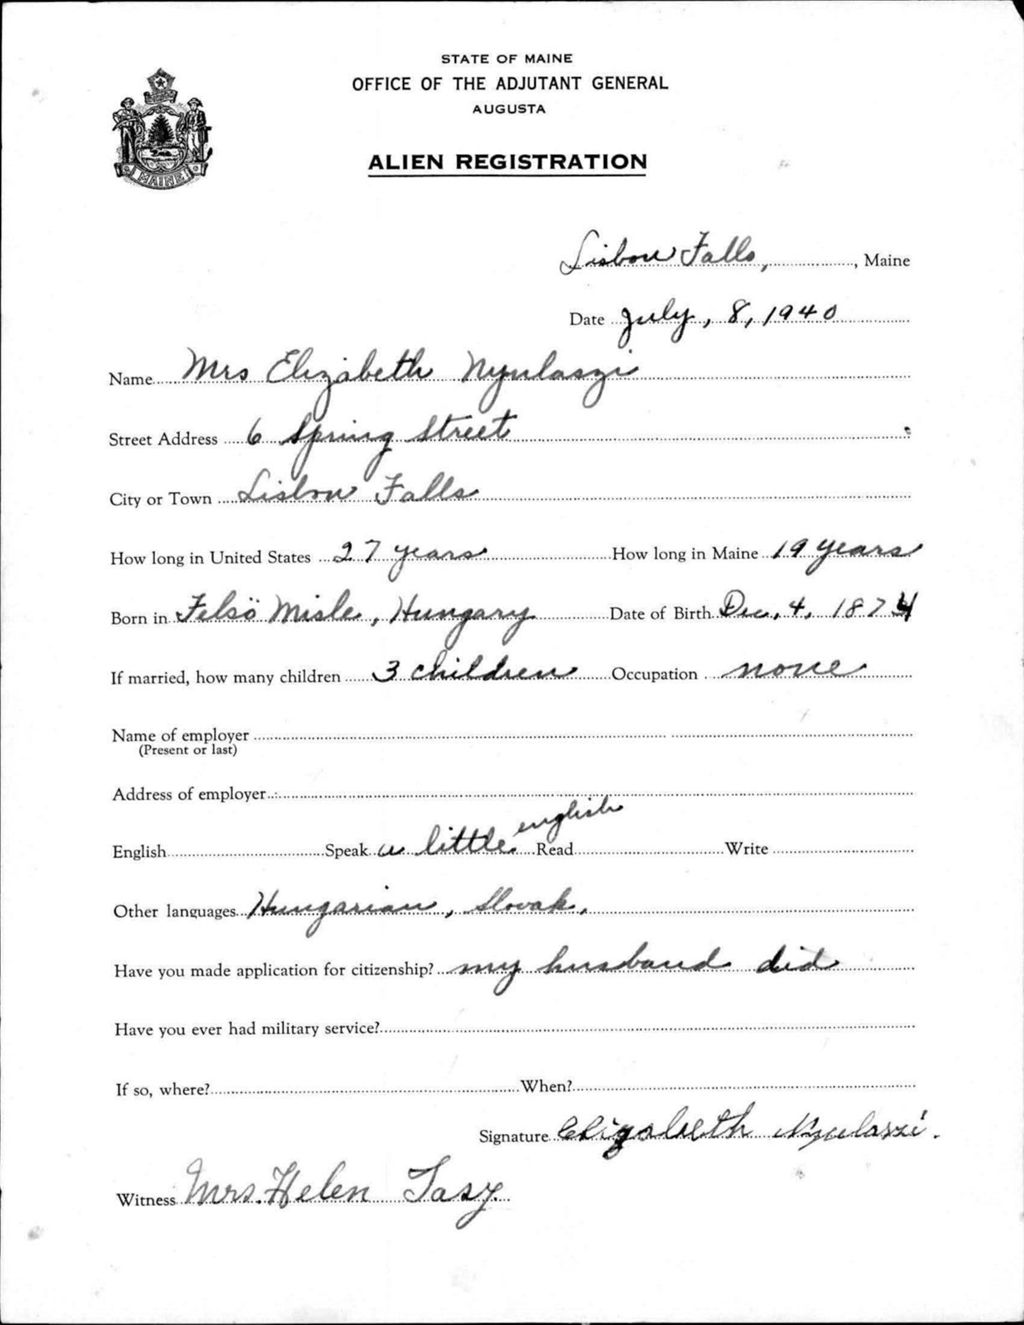 STATE OF MAINE
OFFICE OF THE ADJUTANT GENERAL
AUGUSTA
ALIEN REGISTRATION
MAINE
Lisbon Falls, , Maine
Date July, 8, 1940
Name Mrs Elizabeth Nyulaszi
Street Address 6 Spring Street
City or Town Lisbon Falls
How long in United States 27 years How long in Maine 19 years
Born in Felsö Misle, Hungary Date of Birth Dec, 4, 1874
If married, how many children 3 children Occupation none
Name of employer
(Present or last)
Address of employer
English Speak a little english Read Write
Other languages Hungarian, Slovak,
Have you made application for citizenship? my husband did
Have you ever had military service?
If so, where? When?
Signature Elizabeth Nyulaszi.
Witness Mrs. Helen Tasy